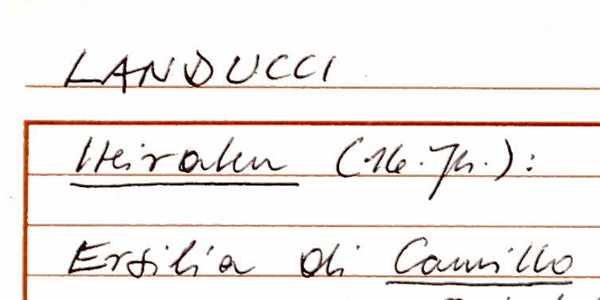 LANDUCCI
Heiraten (16. Jh.):
Ersilia di Camillo